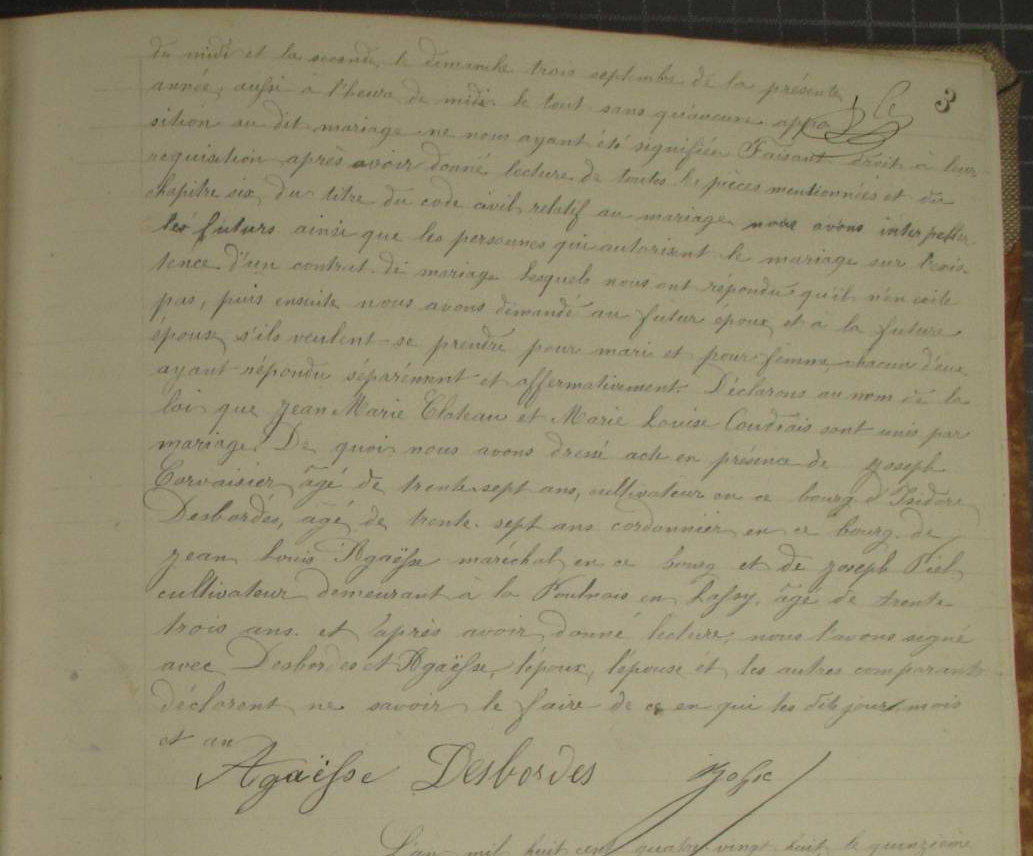 3
du midi et la seconde, le dimanche trois septembre de la présente
année, aussi à l'heure de midi le tout sans qu'aucune oppo
sition au dit mariage ne nous ayant été signifiée Faisant droit à leur
requisition après avoir donné lecture de toutes les pièces mentionnées et du
chapitre six, du titre du code civil, relatif au mariage nous avons interpeller
les futurs ainsi que les personnes qui autorisent le mariage sur l'exis
tence d'un contrat de mariage lesquels nous ont répondu qu'il n'en existe
pas, puis ensuite nous avons demandé au futur époux et à la future
épouse s'ils veulent se prendre pour mari et pour femme chacun d'eux
ayant répondu séparément et affermativement. Déclarons au nom de la
loi que Jean Marie Clateau et Marie Louise Coudrais sont unis par
mariage. De quoi nous avons dressé acte en présence de Joseph
Corvaisier âgé de trente-sept ans, cultivateur en ce bourg d'Isidore
Desbordés, âgé de trente-sept ans cordonnier en ce bourg de
Jean Louis Agaësse maréchal en ce bourg et de Joseph Piel
cultivateur demeurant à la Poulnais en Lassy, âgé de trente
trois ans. et après avoir donné lecture, nous l'avons signé
avec Desbordes et Agaësse, l'époux, l'épouse et les autres comparants
déclarent ne savoir le faire de ce en qui les dits jour mois
et an
Agaësse Desbordes
L'an mil huit cent quatre vingt huit le quinzième